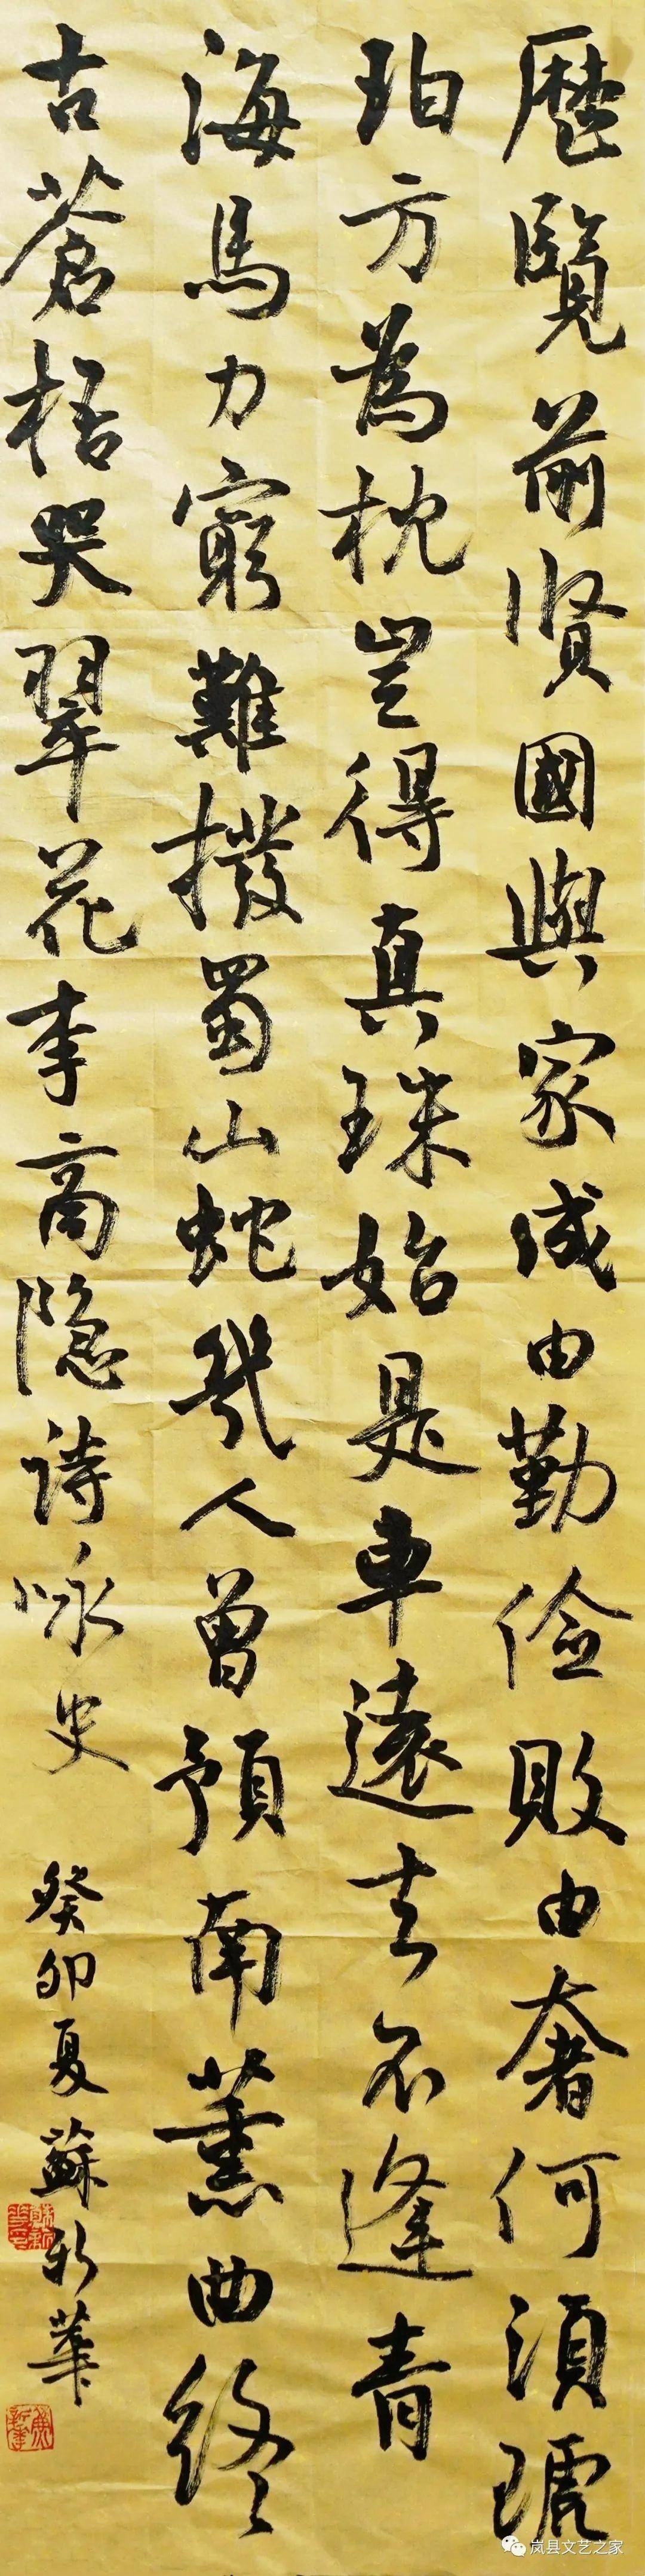 歷覽前賢國與家成由勤儉敗由奢何須琥
珀方為枕豈得真珠始是車遠去不逢青
海馬力窮難撥蜀山蛇幾人曾預南薰曲終
古蒼梧哭翠花李商隐诗咏史
癸卯夏蘇新華
岚县文艺之家